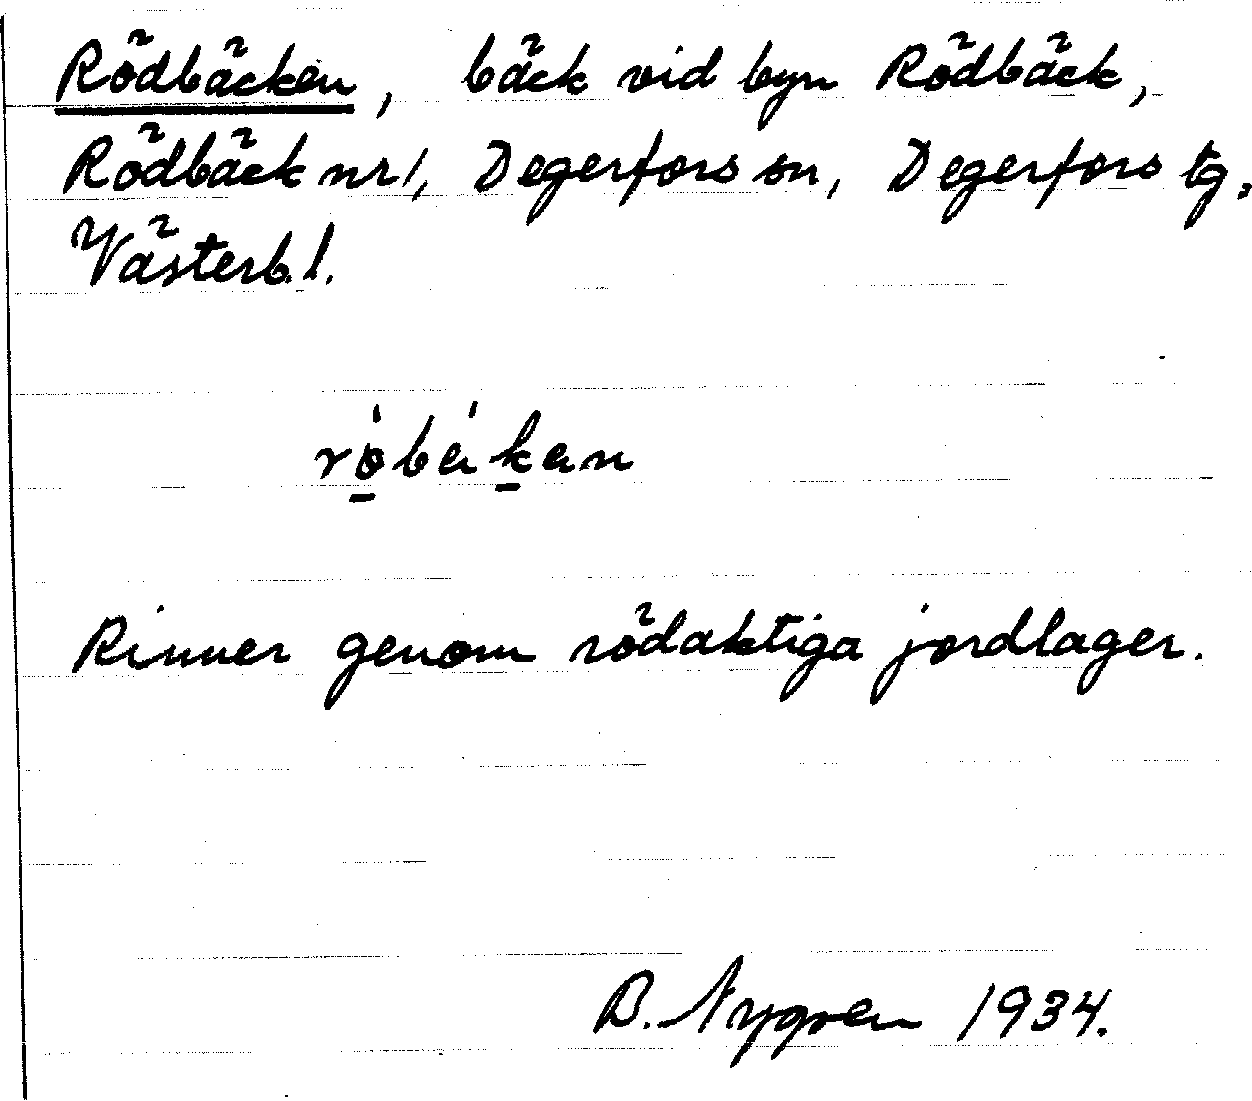 Rödbäcken, bäck vid byn Rödbäck,
Rödbäck nr 1, Degerfors sn, Degerfors tg,
Västerb. l.
Rinner genom rödaktiga jordlager.
B. Nygren 1934.